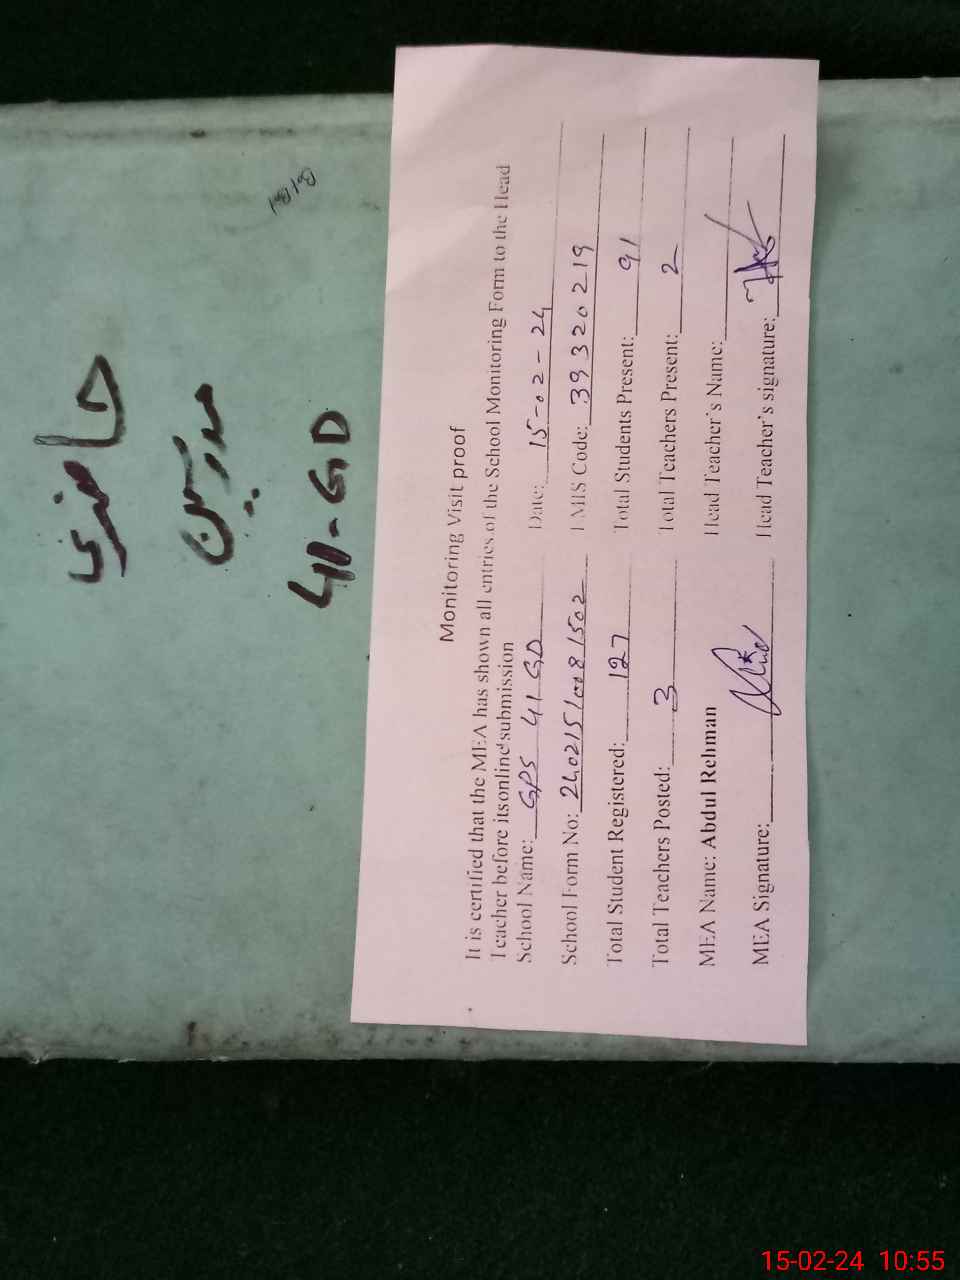 حاضری
مدرسین
41-GD
Monitoring Visit proof
It is certified that the MEA has shown all entries of the School Monitoring Form to the Head
Teacher before itsonline submission
School Name: GPS 41 GD Date: 15-02-24
School Form No: 24021510081502 EMIS Code: 39320219
Total Student Registered: 127 Total Students Present: 91
Total Teachers Posted: 3 Total Teachers Present: 2
MEA Name: Abdul Rehman Head Teacher's Name:
MEA Signature: Head Teacher's signature:
15-02-24 10:55